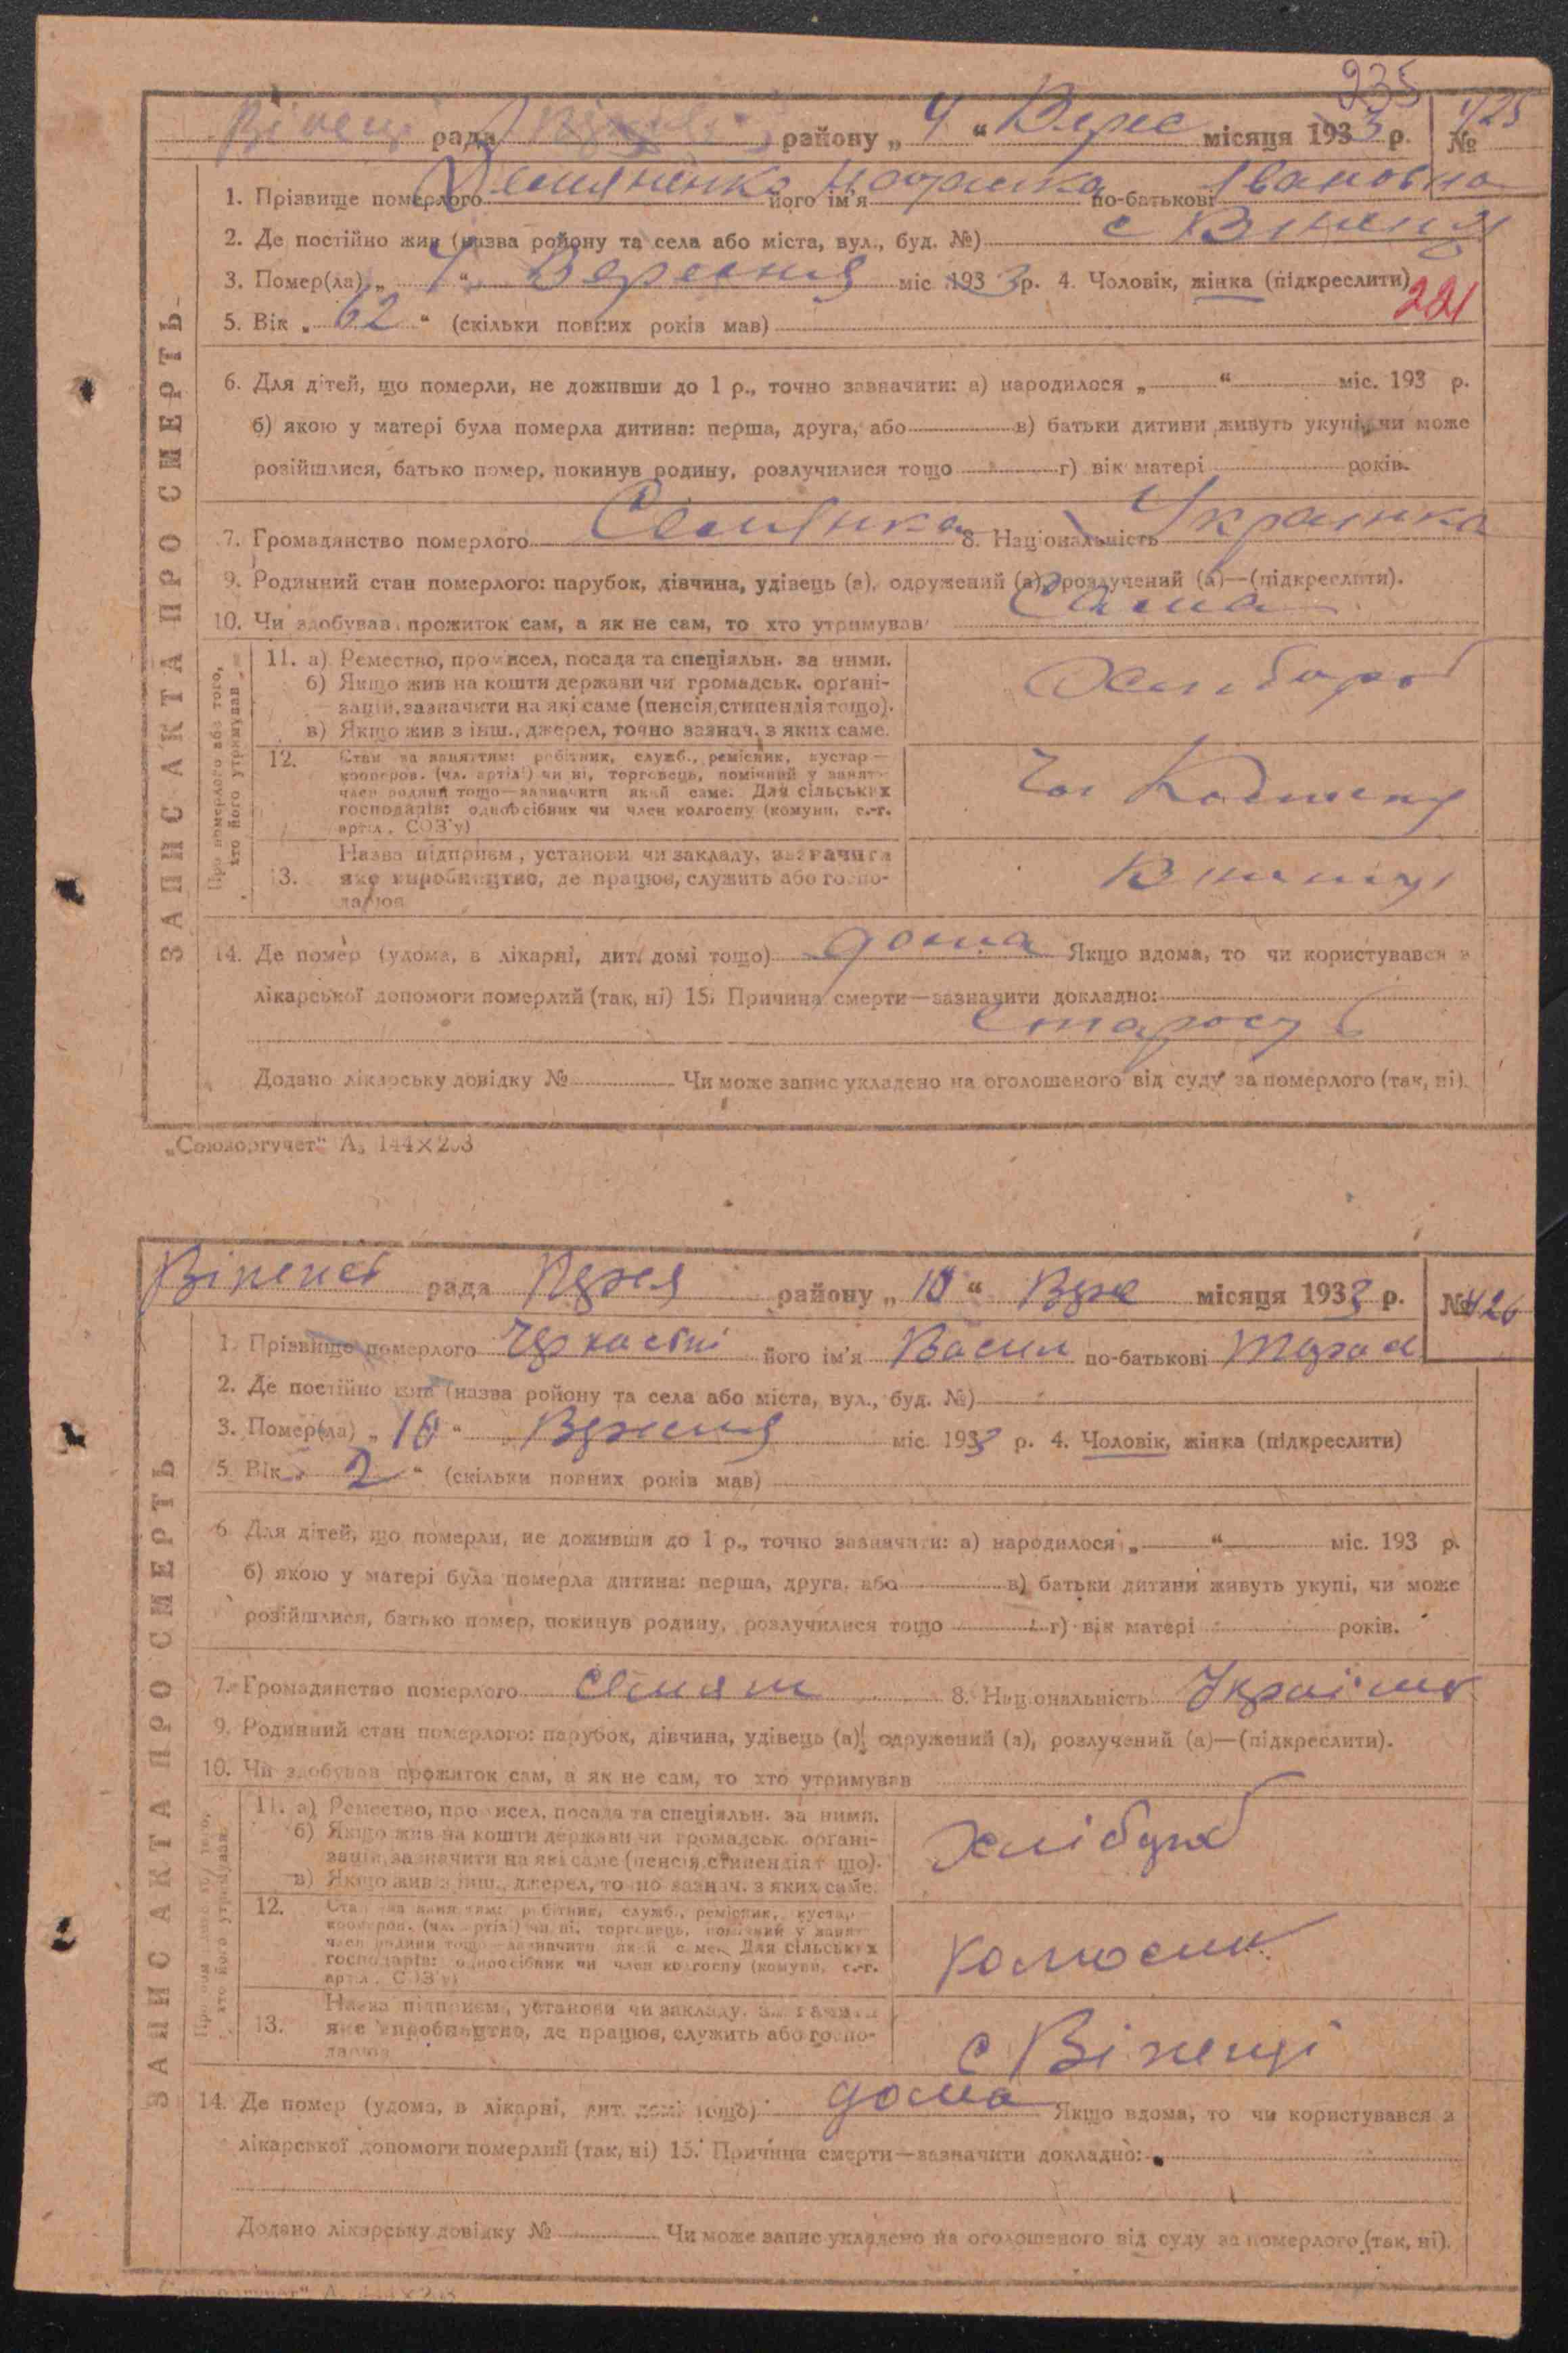 235
рада району „ 4 “ Верес місяця 1933 р. № 425
1. Прізвище померлого Демяненко його ім'я по-батькові Івановна
2. Де постійно жив (назваройону та села або міста, вул., буд. №) с
3. Помер(ла) „ 4 “ Вересня міс 1933 р. 4. Чоловік, жінка (підкреслити)
221
5. Вік „ 62 “ (скільки повних років мав)
6. Для дітей, що померли, не доживши до 1 р., точно зазначити: а) народилося „ “ міс. 193 р.
б) якою у матері була померла дитина: перша, друга, або в) батьки дитини живуть укупі, чи може
розійшлися, батько помер, покинув родину, розлучилися тощо г) вік матері років.
7. Громадянство померлого Селянка 8. Національність Українка
9. Родинний стан померлого: парубок, дівчина, удівець (а), одружений (а), розлучений (а)—(підкреслити).
10. Чи здобував прожиток сам, а як не сам, то хто утримував Сама
Про померлого або того, хто його утримував
11. а) Ремество, промисел, посада та спеціяльн. за ними.
б) Якщо жив на кошти держави чи громадськ. органі-
зацій, зазначити на які саме (пенсія, стипендія тощо).
в) Якщо жив з інш., джерел, точно зазнач. з яких саме.
Хлибороб
12. Стан за заняттям: робітник, служб., ремісник, кустар—
кооперов. (чл. артілі) чи ні, торговець, помічний у занят-
член родини тощо—зазначити який саме. Для сільських
господарів: одноосібник чи член колгоспу (комуни, с.-г.
артіл., СОЗ'у)
Чл
13. Назва підприєм., установи чи закладу, зазначити
яке виробництво, де працює, служить або госпо-
дарює
14. Де помер (удома, в лікарні, дит. домі тощо) дома Якщо вдома, то чи користувався з
лікарської допомоги померлий (так, ні) 15. Причина смерти—зазначити докладно:
Додано лікарську довідку № Чи може запис укладено на оголошеного від суду за померлого (так, ні).
ЗАПИС АКТА ПРО СМЕРТЬ
„Союзоргучет“ А₅ 144×203
рада району „ 10 “ Вере місяця 1933 р. № 426
1. Прізвище померлого його ім'я Васил по-батькові Тарас
2. Де постійно жив (назва ройону та села або міста, вул., буд. №)
3. Помер(ла) „ 10 “ Вересня міс 1933 р. 4. Чоловік, жінка (підкреслити)
5. Вік „ 2 “ (скільки повних років мав)
6. Для дітей, що померли, не доживши до 1 р., точно зазначити: а) народилося „ “ міс. 193 р.
б) якою у матері була померла дитина: перша, друга, або в) батьки дитини живуть укупі, чи може
розійшлися, батько помер, покинув родину, розлучилися тощо г) вік матері років.
7. Громадянство померлого Селян 8. Національність
9. Родинний стан померлого: парубок, дівчина, удівець (а), одружений (а), розлучений (а)—(підкреслити).
10. Чи здобував прожиток сам, а як не сам, то хто утримував
11. а) Ремество, промисел, посада та спеціяльн. за ними.
б) Якщо жив на кошти держави чи громадськ. органі-
зацій, зазначити на які саме (пенсія, стипендія тощо).
в) Якщо жив з інш., джерел, точно зазнач. з яких саме.
Хліборб
12. Стан за заняттям: робітник, служб., ремісник, кустар—
кооперов. (чл. артілі) чи ні, торговець, помічний у занят-
член родини тощо—зазначити який саме. Для сільських
господарів: одноосібник чи член колгоспу (комуни, с.-г.
артіл., СОЗ'у)
13. Назва підприєм., установи чи закладу, зазначити
яке виробництво, де працює, служить або госпо-
дарює
с Віненці
14. Де помер (удома, в лікарні, дит. домі тощо) дома Якщо вдома, то чи користувався з
лікарської допомоги померлий (так, ні) 15. Причина смерти—зазначити докладно:
Додано лікарську довідку № Чи може запис укладено на оголошеного від суду за померлого (так, ні).
ЗАПИС АКТА ПРО СМЕРТЬ